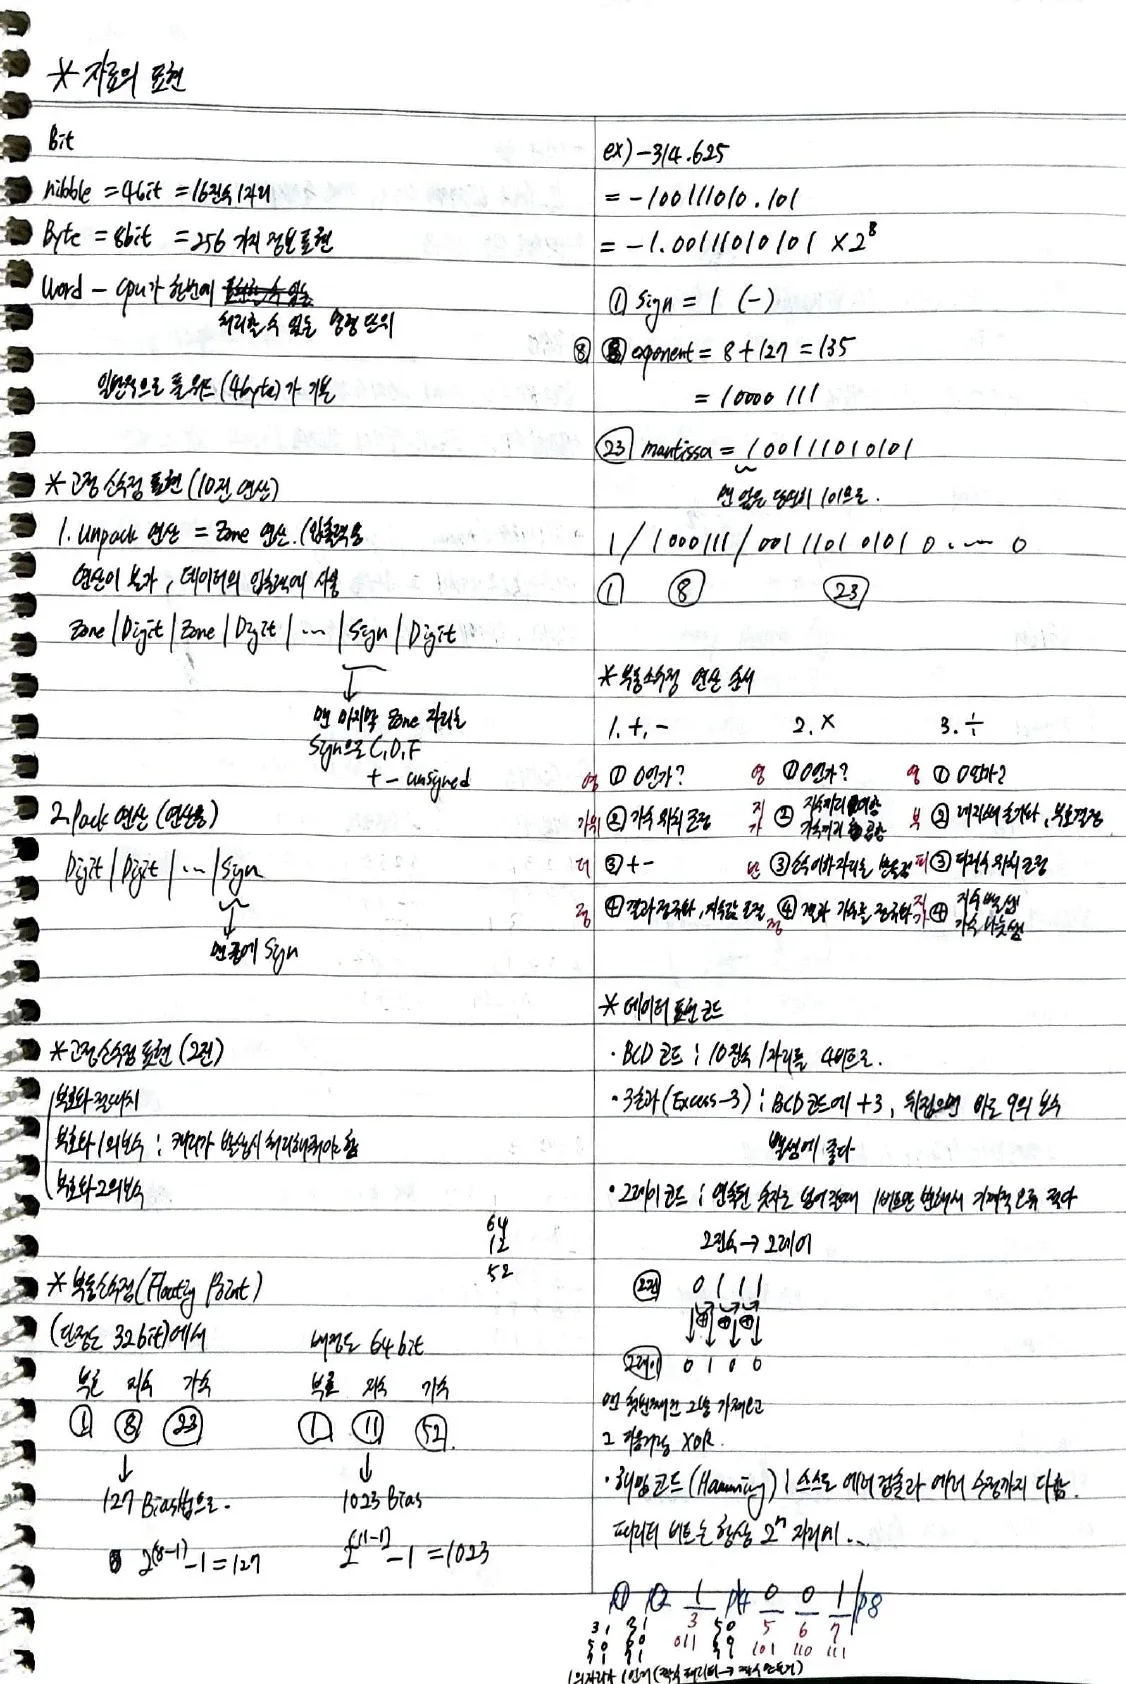 * 자료의 표현
Bit
nibble = 4bit = 16진수 1자리
Byte = 8bit = 256 가지 정보표현
Word - CPU가 한번에
처리할 수 있는 명령 단위
일반적으로 풀워드(4byte)가 기본
* 고정 소수점 표현 (10진 연산)
1. Unpack 연산 = Zone 연산. (입출력용
연산이 불가, 데이터의 입출력에 사용
Zone | Digit | Zone | Digit | ... | Sign | Digit
맨 마지막 Zone 자리는
Sign으로 C, D, F
+ - unsigned
2. Pack 연산 (연산용)
Digit | Digit | ... | Sign
맨 끝에 Sign
* 고정소수점 표현 (2진)
부호화 절대치
부호화 1의보수 : 캐리가 발생시 처리해줘야 함
부호화 2의보수
64
12
52
* 부동소수점(Floating Point)
(단정도 32bit)에서 배정도 64bit
부호 지수 가수 부호 지수 가수
① ⑧ ㉓ ① ⑪ 52
127 Bias법으로. 1023 Bias
2^(8-1) - 1 = 127 2^(11-1) - 1 = 1023
ex) -314.625
= -100111010.101
= -1.00111010101 × 2^8
① Sign = 1 (-)
⑧ exponent = 8 + 127 = 135
= 10000111
㉓ mantissa = 100111010101
맨 앞은 당연히 1이므로.
1 / 1000111 / 00111010101 0 ... 0
① ⑧ ㉓
* 부동소수점 연산 순서
1. +, - 2. × 3. ÷
영 ① 0인가? 영 ① 0인가? 영 ① 0인가?
가위 ② 가수 위치 조정 지가 ② 지수끼리 더하 가수끼리 곱함 부 ② 레지스터 초기화, 부호결정
더 ③ + - ③ 피 ③ 피젯수 위치 조정
정 ④ 결과 정규화, 지수값 조절 정 ④ 결과 가수를 정규화 지가 ④ 지수 뺄셈 가수 나눗셈
* 데이터 표현 코드
· BCD 코드 : 10진수 1자리를 4비트로.
· 3초과 (Excess-3) : BCD코드에 +3, 뒤집으면 바로 9의 보수
뺄셈에 좋다
· 그레이 코드 : 연속된 숫자로 넘어갈때 1비트만 변해서 기계적 오류 적다
2진수 → 그레이
2진 0 1 1 1
그레이 0 1 0 0
맨 첫번째건 그냥 가져오고
그 다음거는 XOR.
· 해밍 코드 (Hamming) : 스스로 에러 검출과 에러 수정까지 다함.
패리티 비트는 항상 2ⁿ 자리에...
P1 P2 1 P4 0 0 1 P8
3 1 3 1 3 5 0 5 6 7
5 0 6 0 011 6 0 101 110 111
7 1 7 1 7 1
1의자리가 1인거 (짝수 패리티 → 짝수 만들기)